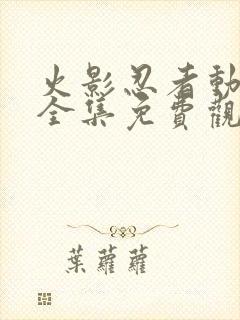 火影忍者動
全集免費觀
葉蘿蘿